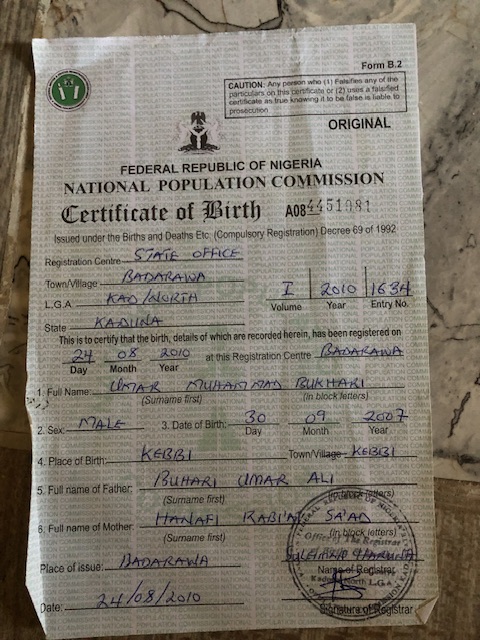 Form B.2
CAUTION: Any person who (1) Falsifies any of the
particulars on this certificate or (2) uses a falsified
certificate as true knowing it to be false is liable to
prosecution
ORIGINAL
FEDERAL REPUBLIC OF NIGERIA
NATIONAL POPULATION COMMISSION
Certificate of Birth A084451981
Issued under the Births and Deaths Etc. (Compulsory Registration) Decree 69 of 1992
Registration Centre STATE OFFICE
Town/Village: BADARAWA
L.G.A KAD/NORTH I 2010 1634
Volume Year Entry No.
State KADUNA
This is to certify that the birth, details of which are recorded herein, has been registered on
24 08 2010 at this Registration Centre BADARAWA
Day Month Year
1. Full Name: UMAR MUHAMMAD BUKHARI
(Surname first) (in block letters)
2. Sex: MALE 3. Date of Birth: 30 09 2007
Day Month Year
4. Place of Birth: KEBBI Town/Village KEBBI
5. Full name of Father: BUHARI UMAR ALI
(Surname first) (in block letters)
6. Full name of Mother: HANAFI RABI'AT SA'AD
(Surname first) (in block letters)
Office of The Registrar
Place of issue: BADARAWA SULEIMAN HARUNA
Name of Registrar
Kaduna North L.G.A
Date: 24/08/2010 Signature of Registrar